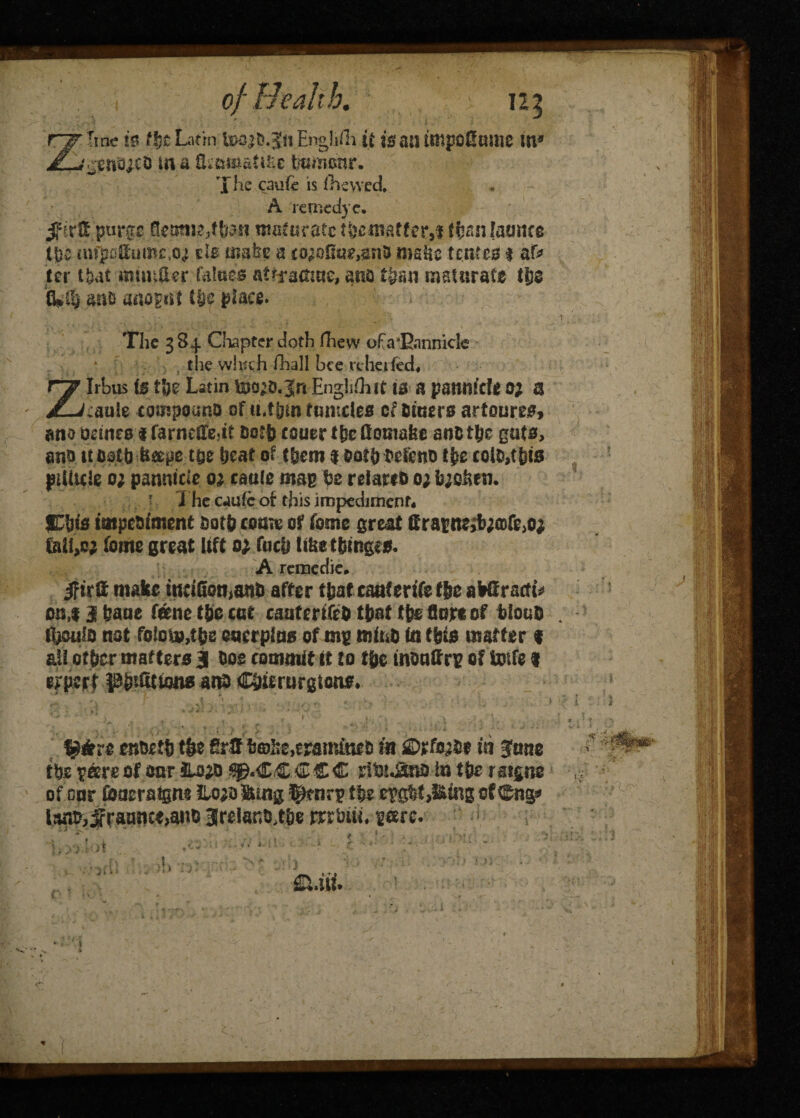 of Health. 123
Zime is the Latin word. In English it is an impostume in-
gendred in a flewmatike humour.
The cause is shewed.
A remedye.
First purge fleume, than maturate the matter, & than launce
the impostume, or els make a corosiue, and make tentes & af-
ter that minister salues attractiue, and than maturate the
flesh and anoynt the place.
The 384 Chapter doth shew of a Pannicle
the which shall bee rehersed.
Zirbus is the Latin word. In English it is a pannicle or a
caule compound of ii. thin tunicles of diuers artoures,
and veines & farnesse, it doth couer the stomake and the guts,
and it doth keepe the heat of them & doth defend the cold, this
pillicle or pannicle or caule may be relared or broken.
The cause of this impediment.
This impediment doth come of some great strayne, brose, or
fall, or some great lift or such like thinges.
A remedie.
First make incision, and after that cauterise the abstracti-
on, & I haue seene the cut cauterised that the fluxe of bloud
should not folow, the ouerplus of my mind in this matter &
all other matters I doe commit it to the industry of wise &
expert Phisitions and Chierurgions.
Here endeth the first booke, examined in Oxforde in June
the yeere of our Lord M.CCCCC xlvi. And in the raigne
of our soueraigne Lord King Henry the eyght, King of Eng-
land, Fraunce, and Ireland, the xxxviii. yeere.
Q.iii.